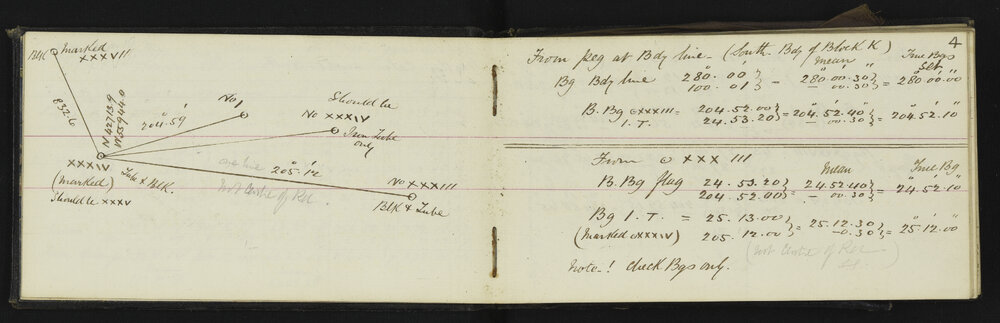 Blk Marked
XXXVII
832.6
N 42713.9
W 55944.0
204°.59'
No 1
Should be
No XXXIV
Iron Tube
only
XXXIV
(Marked)
Should be XXXV
Tube & Blk.
205°.12'
Not Centre of Rd.
No XXXIII
Blk & Tube
4
From peg at Bdy line - (South. Bdy of Block K)
Mean
True Bgs
Bg Bdy line 280°.00'} - 280°.00'.30"} = 280°.00'.00"
100.01} - 00.30}
B. Bg XXXIII = 204.52.00} = 204°.52'.40"} = 204°.52'.10"
I. T. 24.53.20} - 00.30}
From XXXIII
Mean
True Bg
B. Bg flag 24.53.20} = 24.52.40} = 24°.52'.10"
204.52.00} - 00.30}
Bg I. T. = 25.13.00} = 25.12.30} = 25°.12'.00"
(Marked XXXIV) 205.12.00} - 0.30}
(Not Centre of
Note-! Check Bgs only.